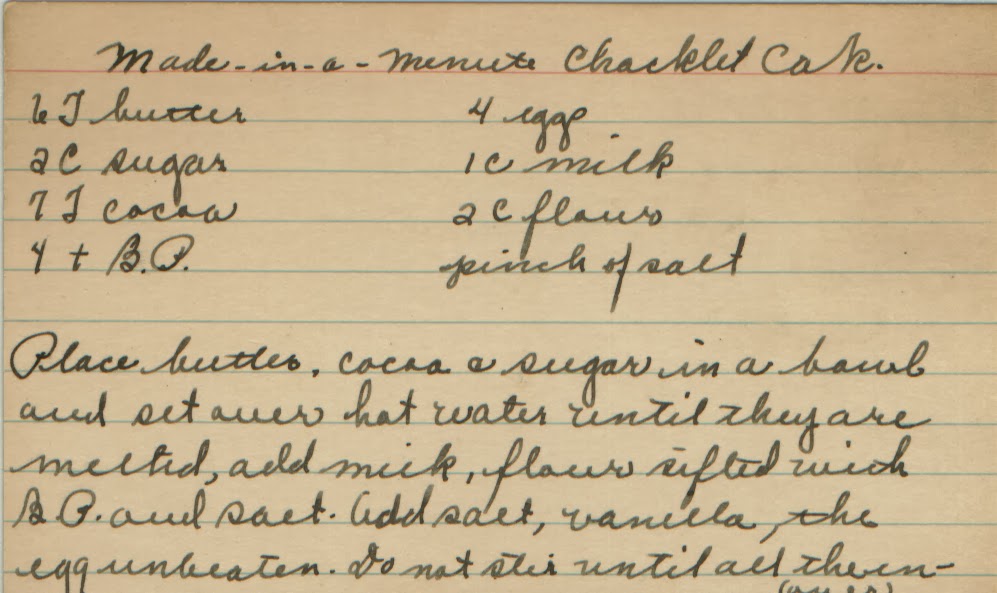 Made-in-a-menute Chacklet Cak.
6 T butter 4 eggs
2C sugar 1C milk
7 T cocoa 2 C flour
4 t B.P. pinch of salt
Place butter, cocoa & sugar in a bowl
and set over hot water until they are
melted, add milk, flour sifted with
B.P. and salt. Add salt, vanilla, the
egg unbeaten. Do not stir until all the in-
(over)